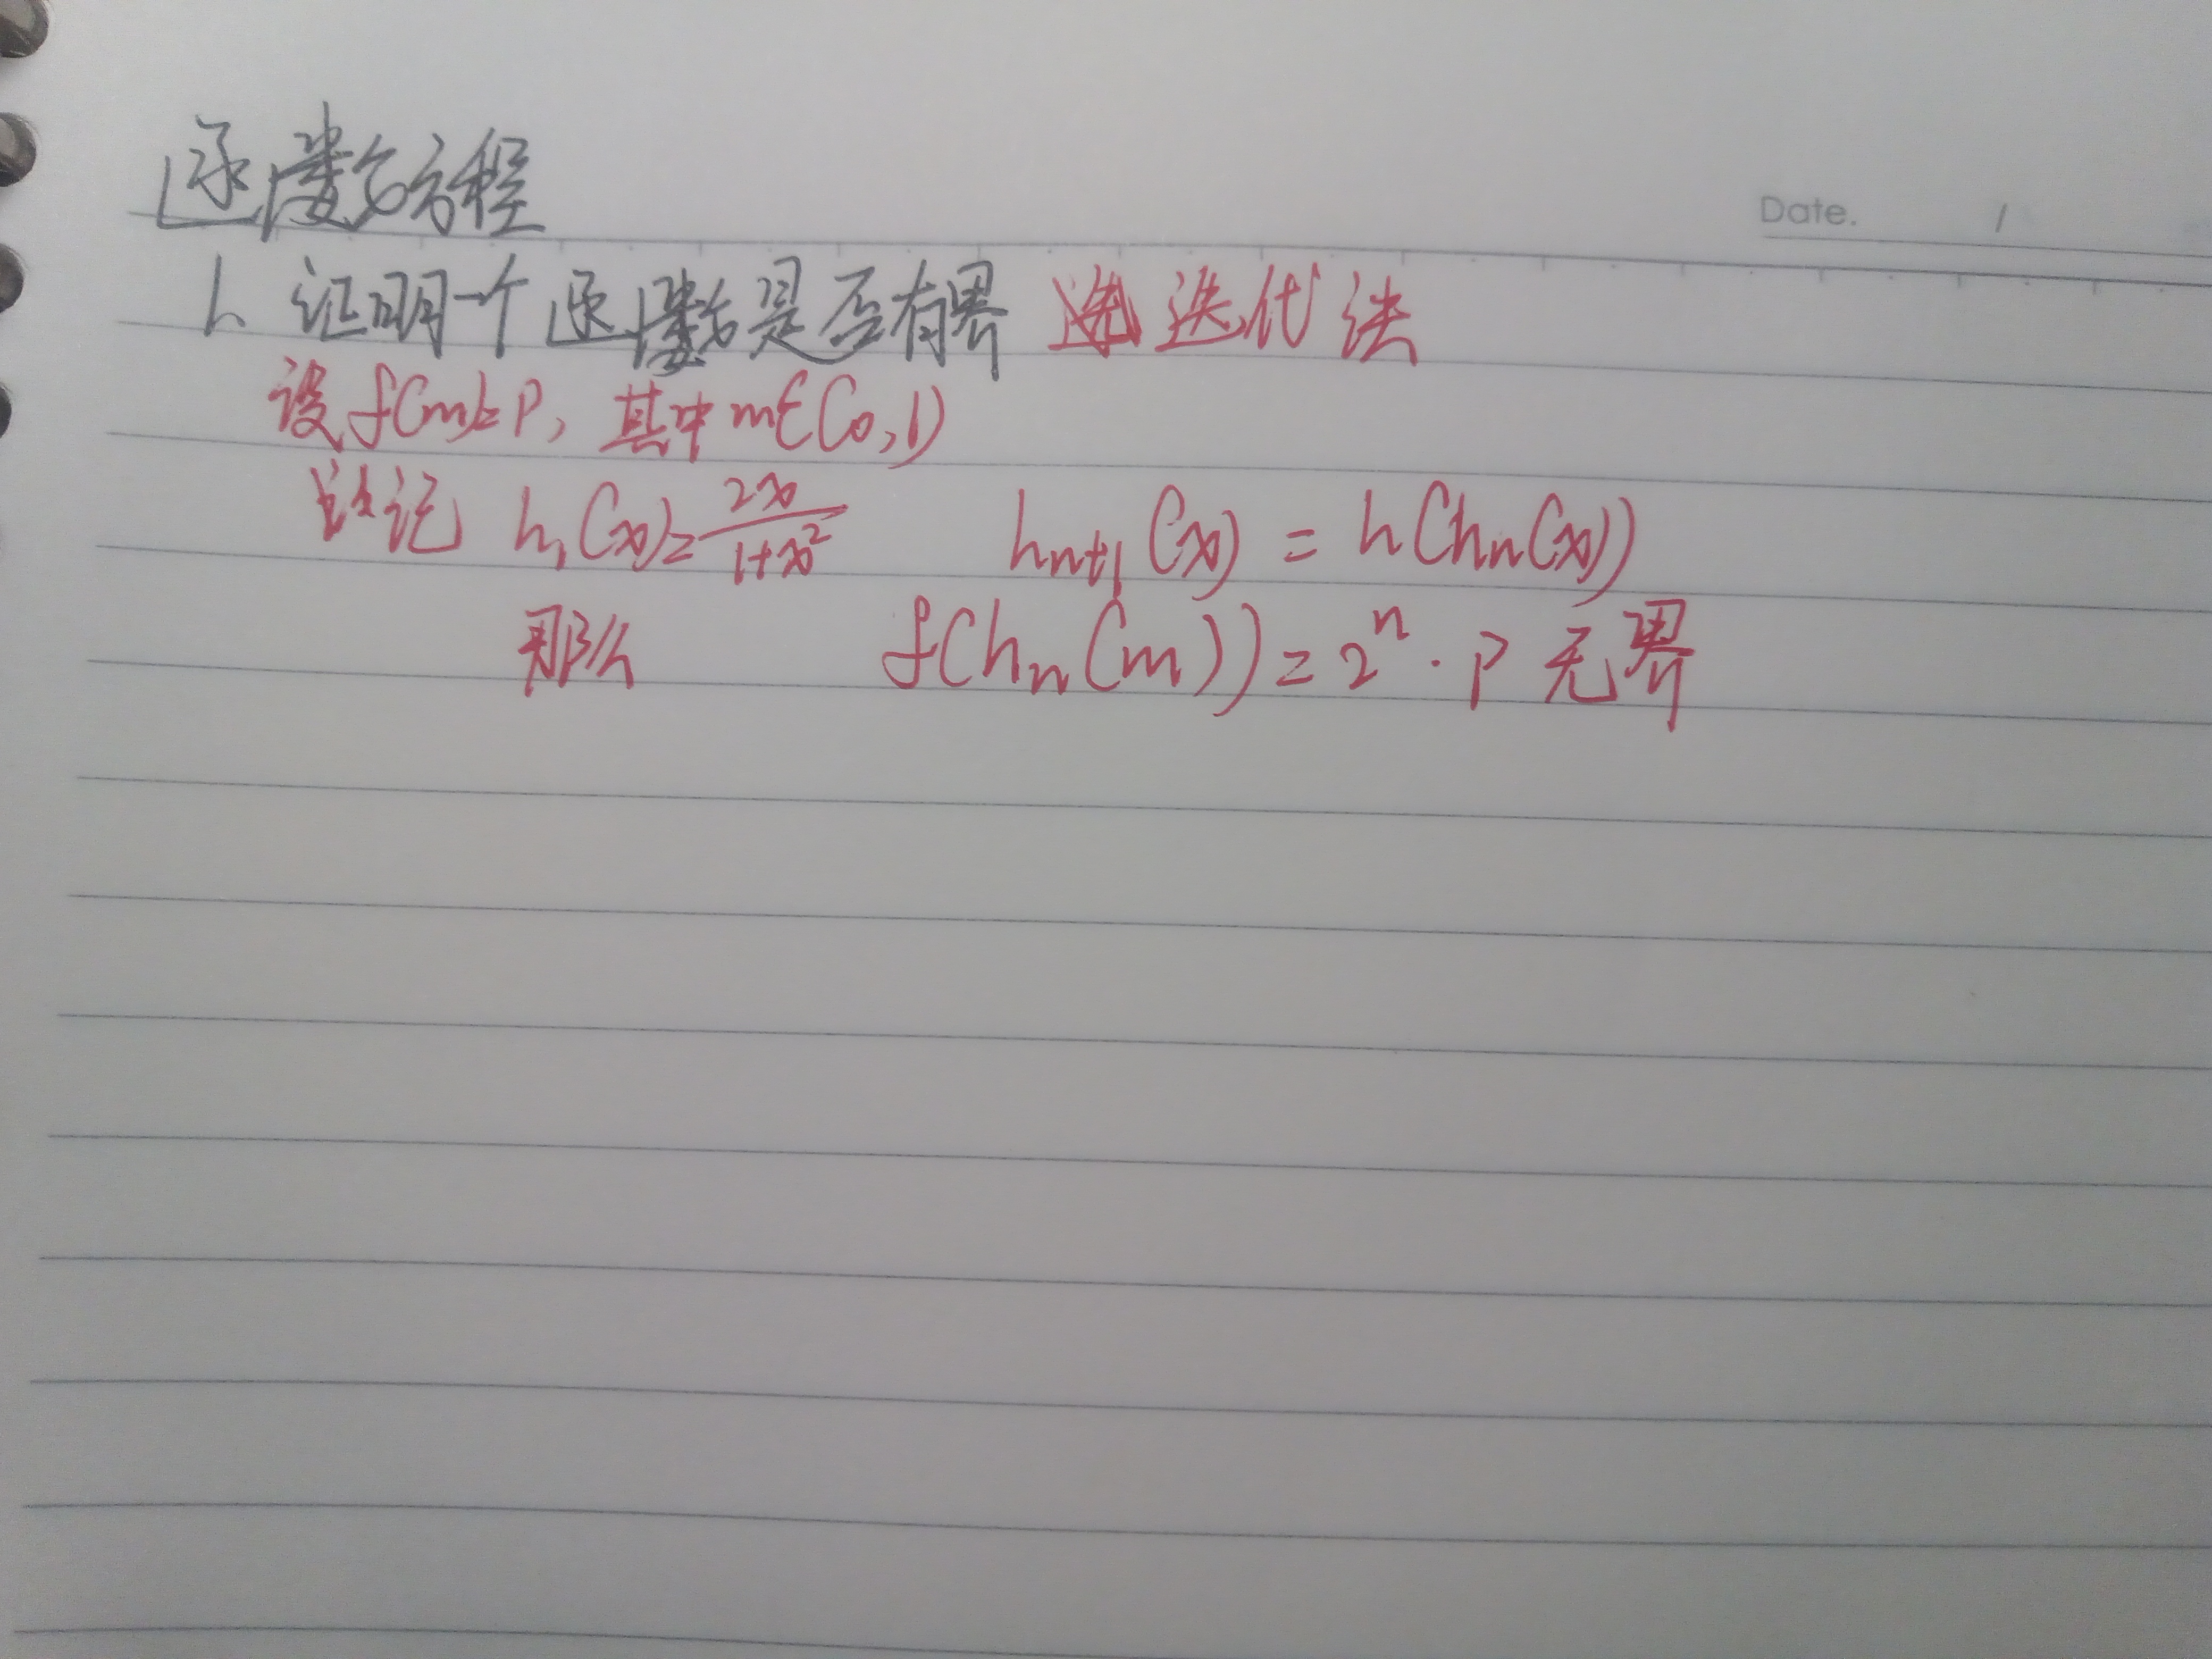 函数方程
Date. /
1、证明一个函数是否有界 迭代法
设f(m)=P, 其中m∈(0,1)
记 h₁(x)=\frac{2x}{1+x²} hₙ₊₁(x) = h(hₙ(x))
那么 f(hₙ(m))=2ⁿ·P 无界